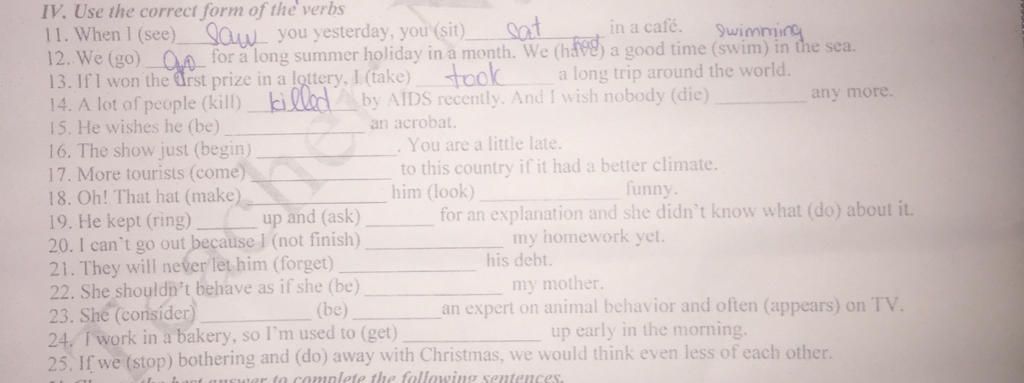 IV. Use the correct form of the verbs
11. When I (see) saw you yesterday, you (sit) sat in a café.
12. We (go) go for a long summer holiday in a month. We (have) a good time (swim) swimming in the sea.
13. If I won the first prize in a lottery, I (take) took a long trip around the world.
14. A lot of people (kill) killed by AIDS recently. And I wish nobody (die) ________ any more.
15. He wishes he (be) ________ an acrobat.
16. The show just (begin) ________. You are a little late.
17. More tourists (come) ________ to this country if it had a better climate.
18. Oh! That hat (make) ________ him (look) ________ funny.
19. He kept (ring) ________ up and (ask) ________ for an explanation and she didn't know what (do) about it.
20. I can't go out because I (not finish) ________ my homework yet.
21. They will never let him (forget) ________ his debt.
22. She shouldn't behave as if she (be) ________ my mother.
23. She (consider) ________ (be) ________ an expert on animal behavior and often (appears) on TV.
24. I work in a bakery, so I'm used to (get) ________ up early in the morning.
25. If we (stop) bothering and (do) away with Christmas, we would think even less of each other.
best answer to complete the following sentences.